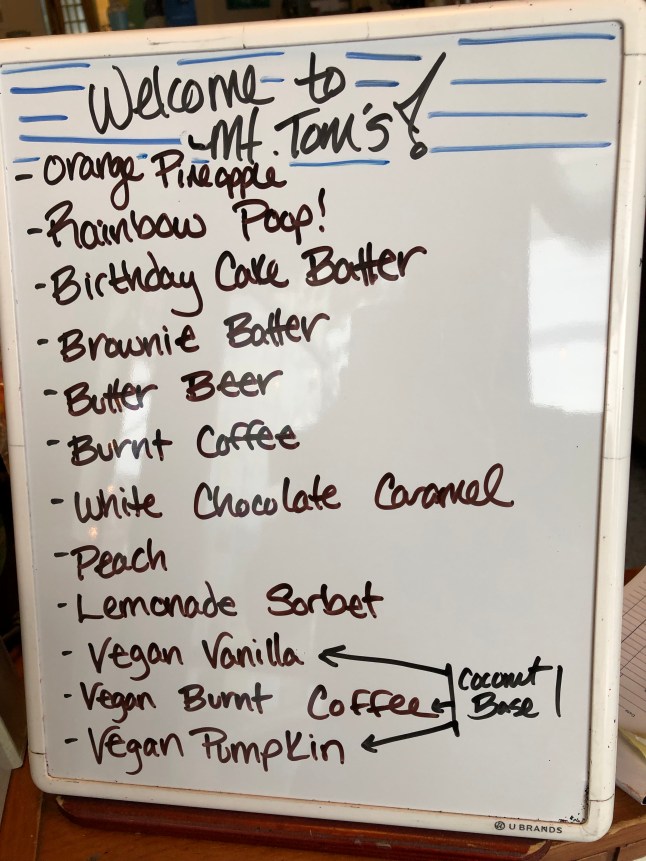 Welcome to
Mt. Tom's!
- Orange Pineapple
- Rainbow Poop!
- Birthday Cake Batter
- Brownie Batter
- Butter Beer
- Burnt Coffee
- White Chocolate Caramel
- Peach
- Lemonade Sorbet
- Vegan Vanilla
- Vegan Burnt Coffee
- Vegan Pumpkin
Coconut
Base
U BRANDS